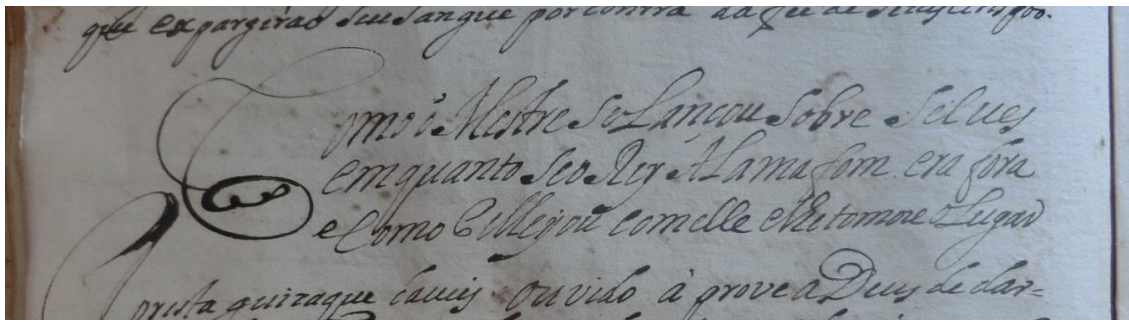 que espargirão seu sangue por contra da fee de
Como o Mestre se Lançou sobre Silues
emquanto seo Rey Alamafom era fora
e Como Pellejou comelle e lhe tomou o Lugar
presta guiza que aueis ouvido á prove a Deus de dar=